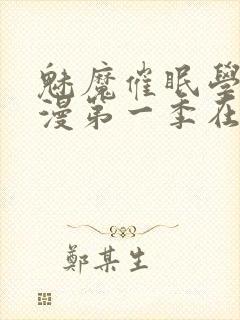 魅魔催眠學
漫第一季在
鄭某生